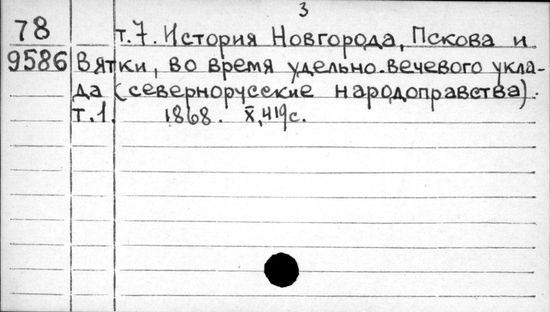 3
78 т.7. История Новгорода, Пскова и
9586 Вятки, во время удельно-вечевого укла-
да (севернорусские народоправства).
т.1. 1868. X, 419с.